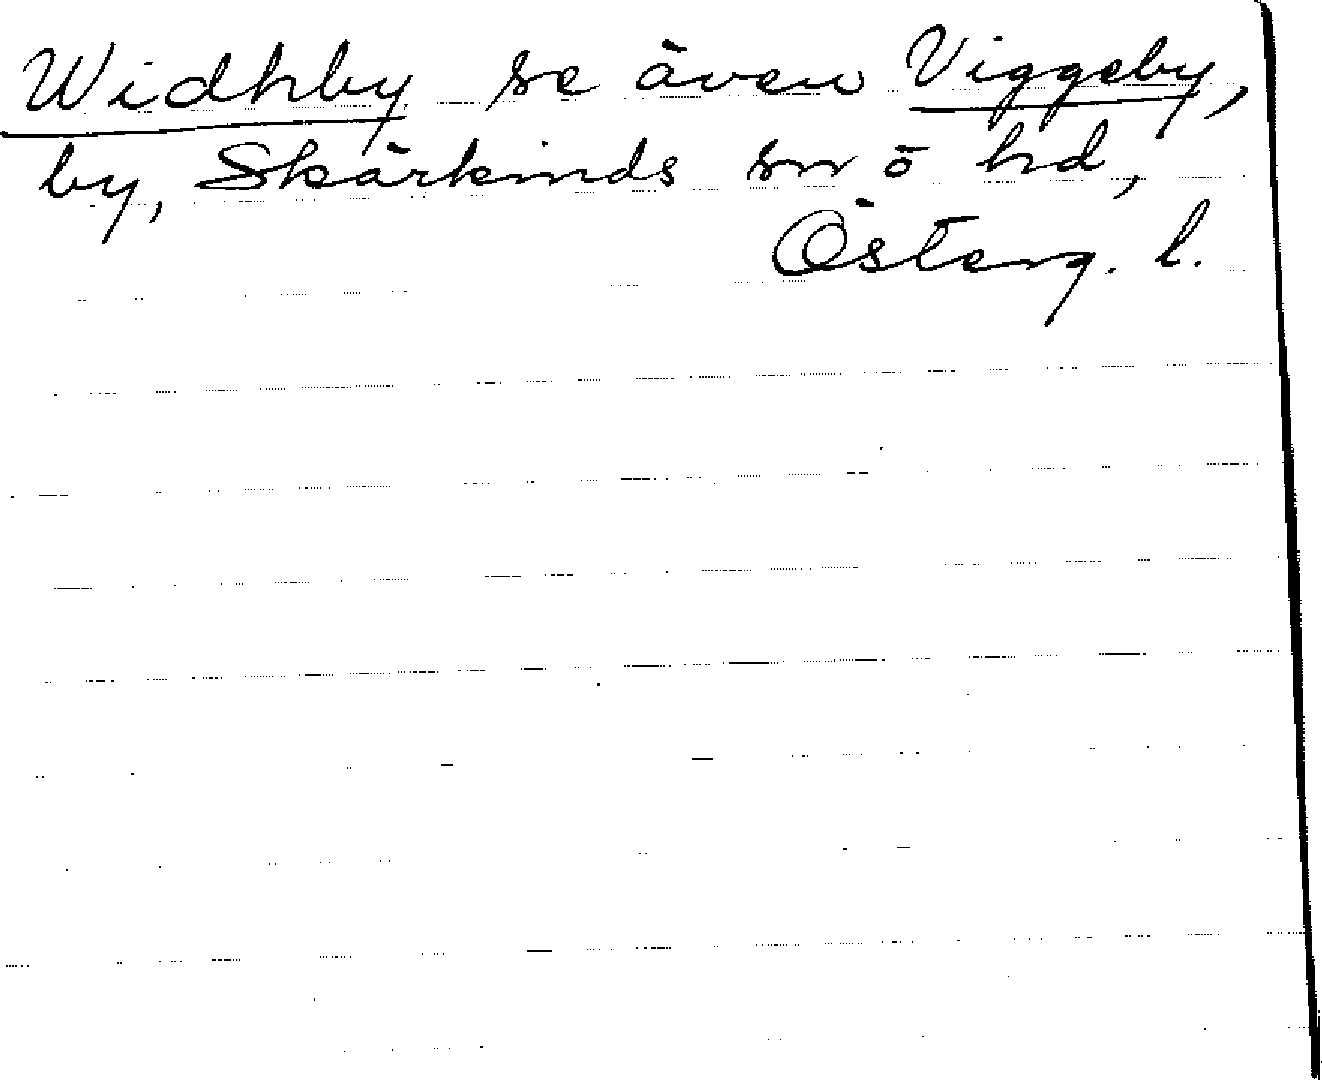 Widhby se även Viggeby,
by, Skärkinds sn o hd,
Österg. l.